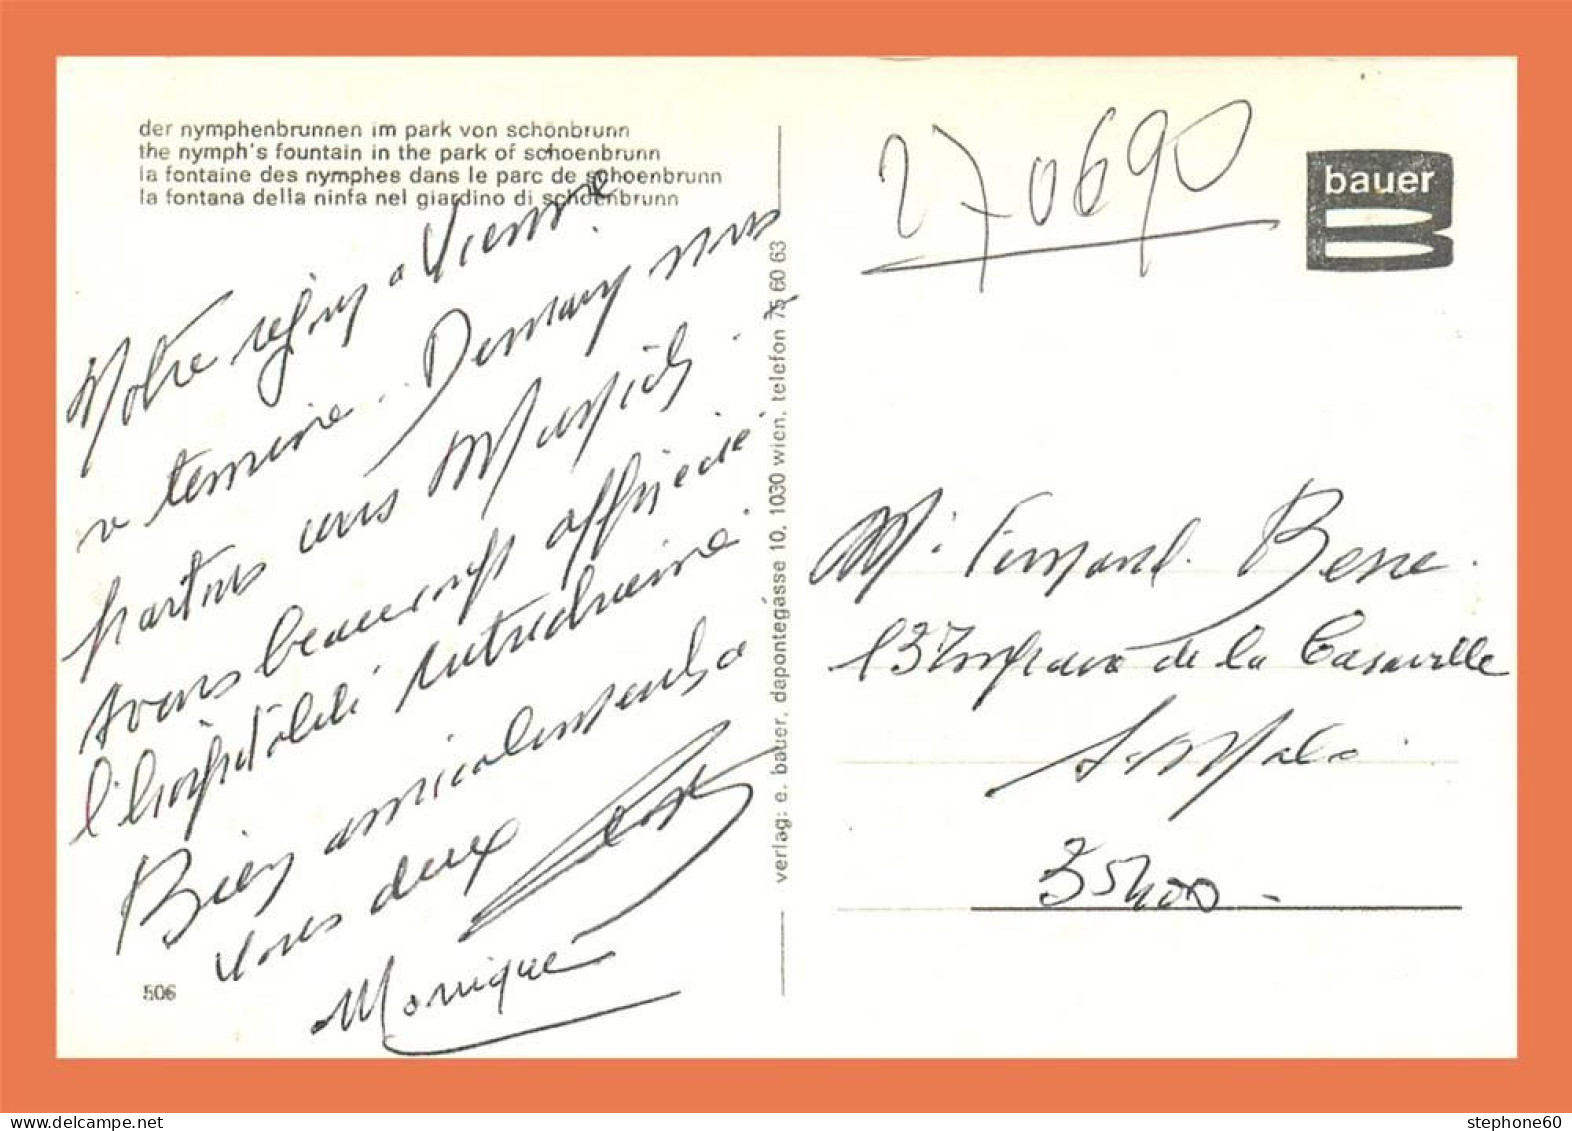 der nymphenbrunnen im park von schönbrunn
the nymph's fountain in the park of schoenbrunn
la fontaine des nymphes dans le parc de schoenbrunn
la fontana della ninfa nel giardino di schoenbrunn
Notre séjour à Vienne
se termine. Demain nous
partons vers Munich.
Avons beaucoup apprécié
l'hospitalité autrichienne.
Bien amicalement à
vous deux
Monique
506
verlag: e. bauer, dapontegasse 10, 1030 wien, telefon 75 60 63
270690
bauer
Mr Fernand Besse.
13 de la
St Malo
35400
stephone60